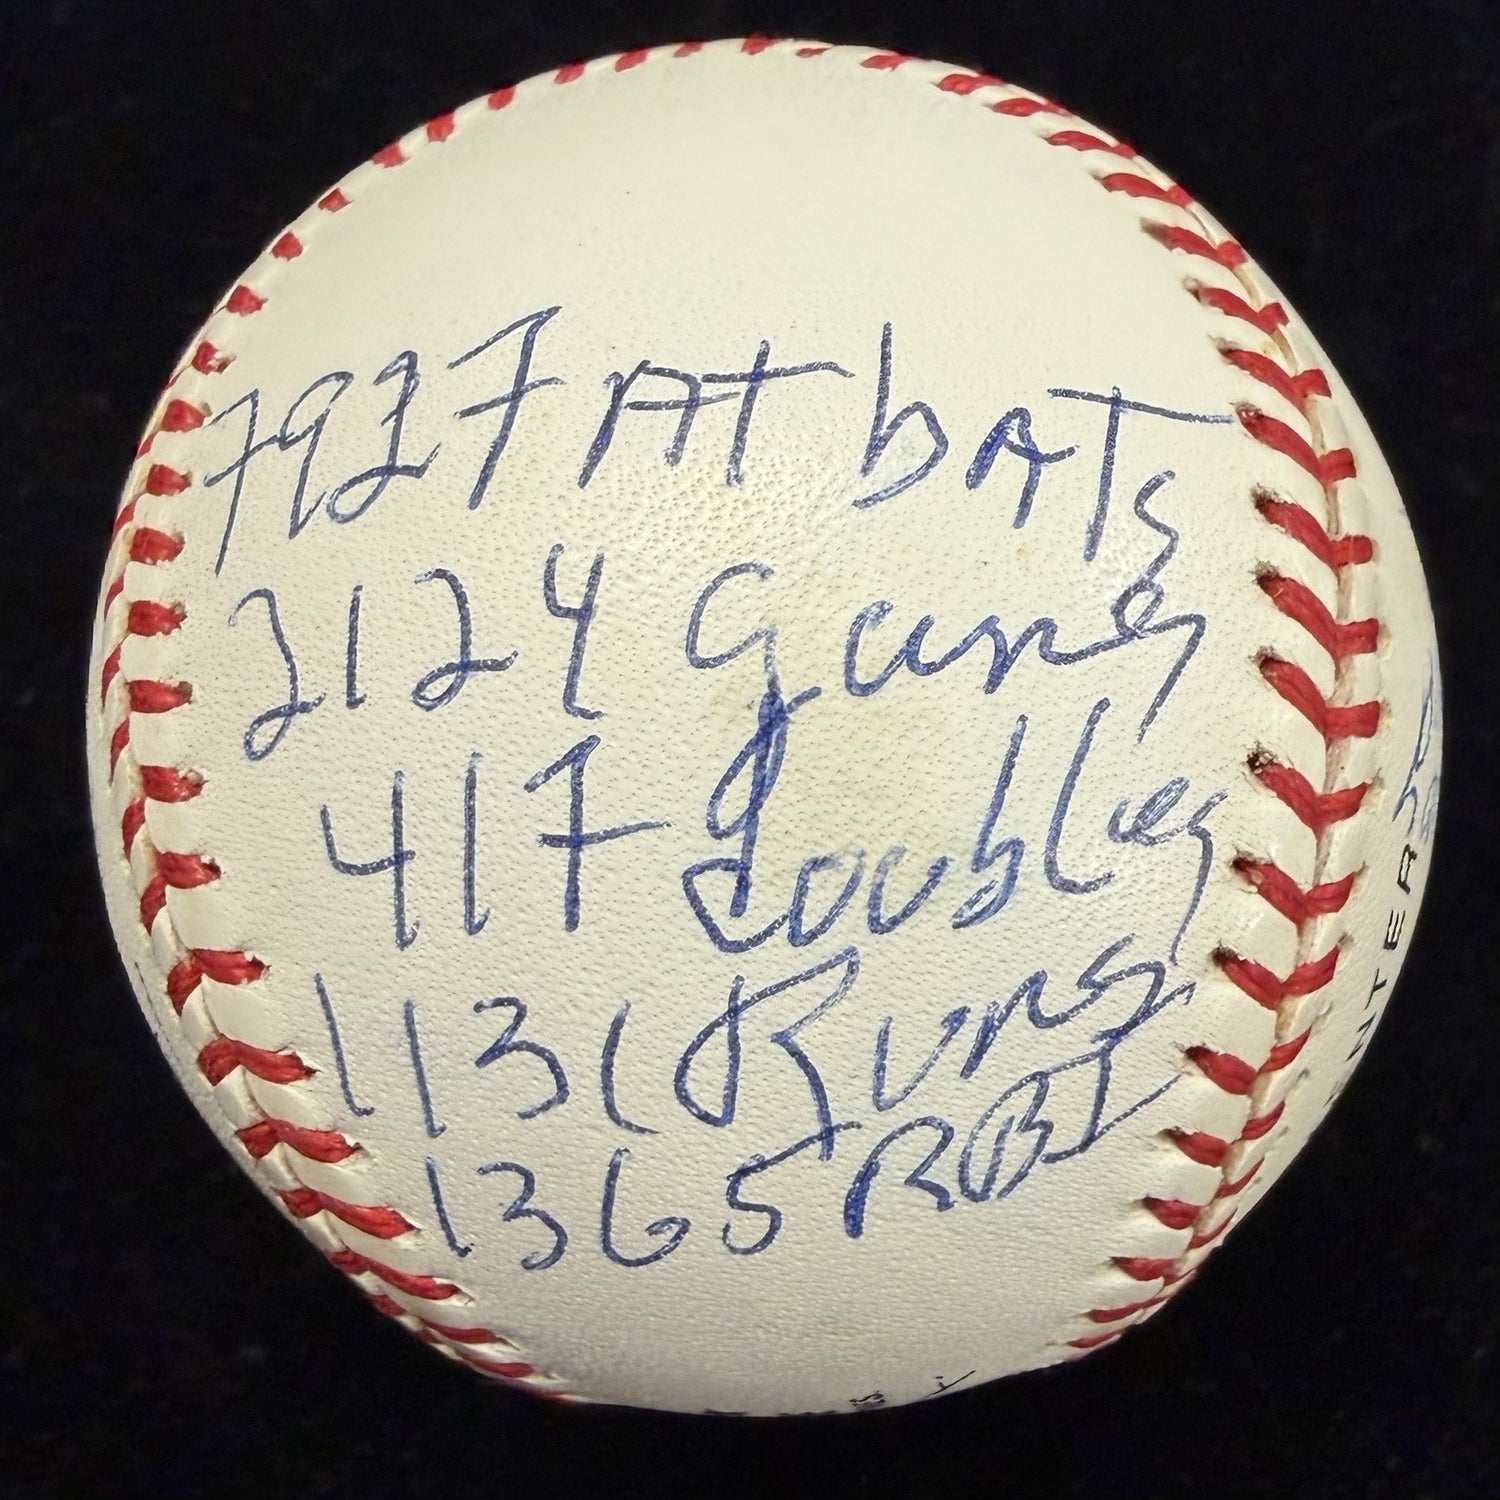 7927 AT bATs
2124 Games
417 doubles
1131 Runs
1365 RBI